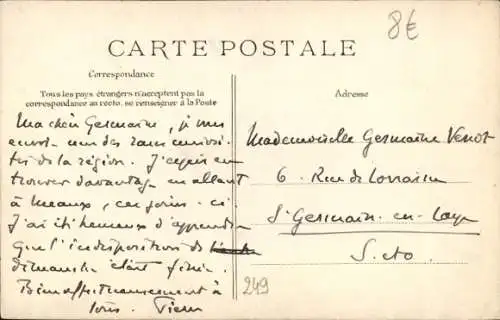 8€
CARTE POSTALE
Correspondance
Tous les pays étrangers n'acceptent pas la
correspondance au recto, se renseigner à la Poste
Adresse
Ma chère Germaine, je vous
envoie une des rares curiosi-
tés de la région. J'espère en
trouver davantage en allant
à Meaux, ces jours-ci
J'ai été heureux d'apprendre
que l'indisposition de
dimanche était finie.
Bien affectueusement à
tous. Pierre
Mademoiselle Germaine Venot
6 Rue de Lorraine
St Germain-en-Laye
S.etO
249